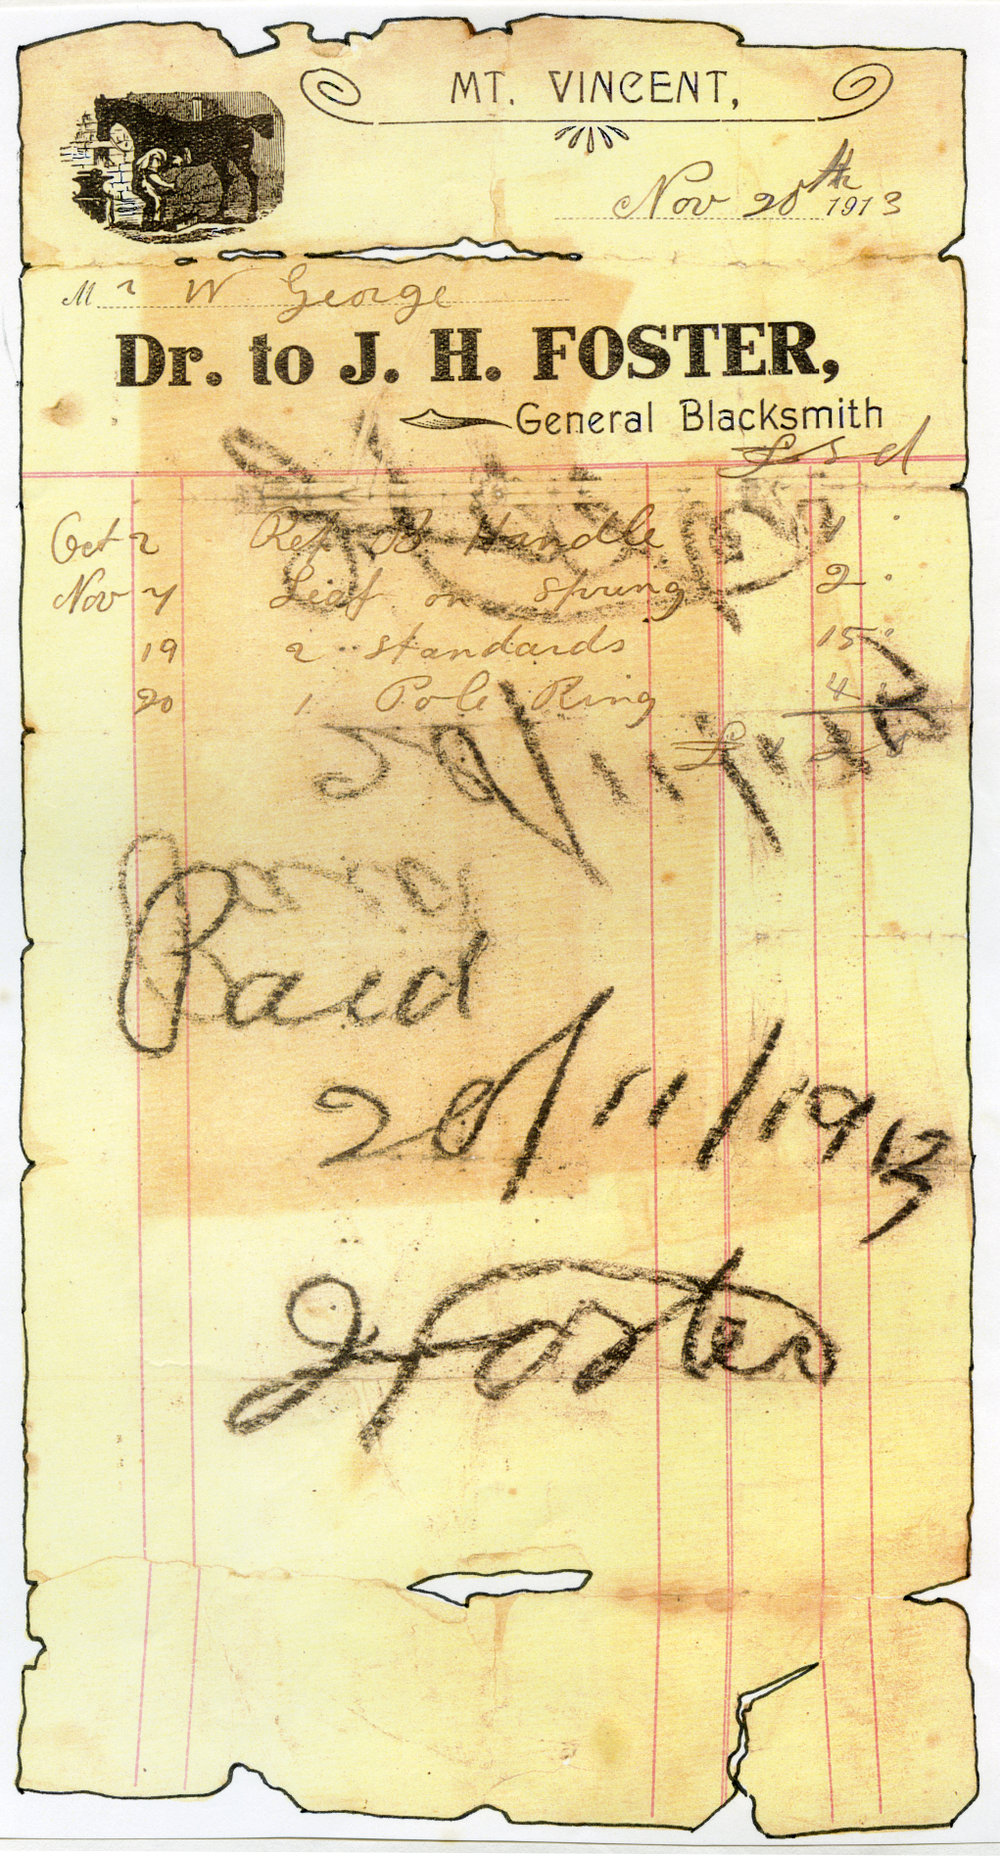 MT. VINCENT,
Nov 20th 1913
Mr W George
Dr. to J. H. FOSTER,
General Blacksmith
£ s d
Oct 2 Rep Handle
Nov 7 Leaf on spring 2
19 2 standards 15
20 1 Pole Ring 4
£
Paid
20/11/1913
J Foster